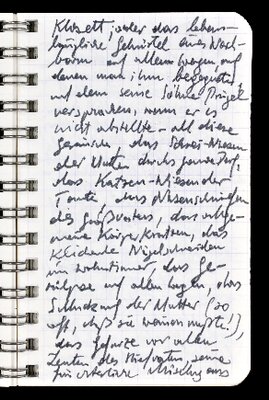 Klosett, oder das lebens-
längliche Schnörtel eines Nach-
barn auf allen Wegen, auf
denen man ihm begegnete,
auf dem seine Söhne Prügel
versprachen, wenn er es
nicht abstellte – all diese
Geräusche, das Schrei-Niesen
der Mutter durchs ganze Dorf,
das Katzen-Niesen der
Tante, das
des Großvaters, das allge-
meine Körper Kratzen, das
Nägelschneiden
im Wohnzimmer, das Ge-
rülpse auf allen Wegen, das
der Mutter (so
oft, daß sie weinen mußte!),
das Gefurze vor allen
Leuten des Stiefvaters, seine
Mischung aus